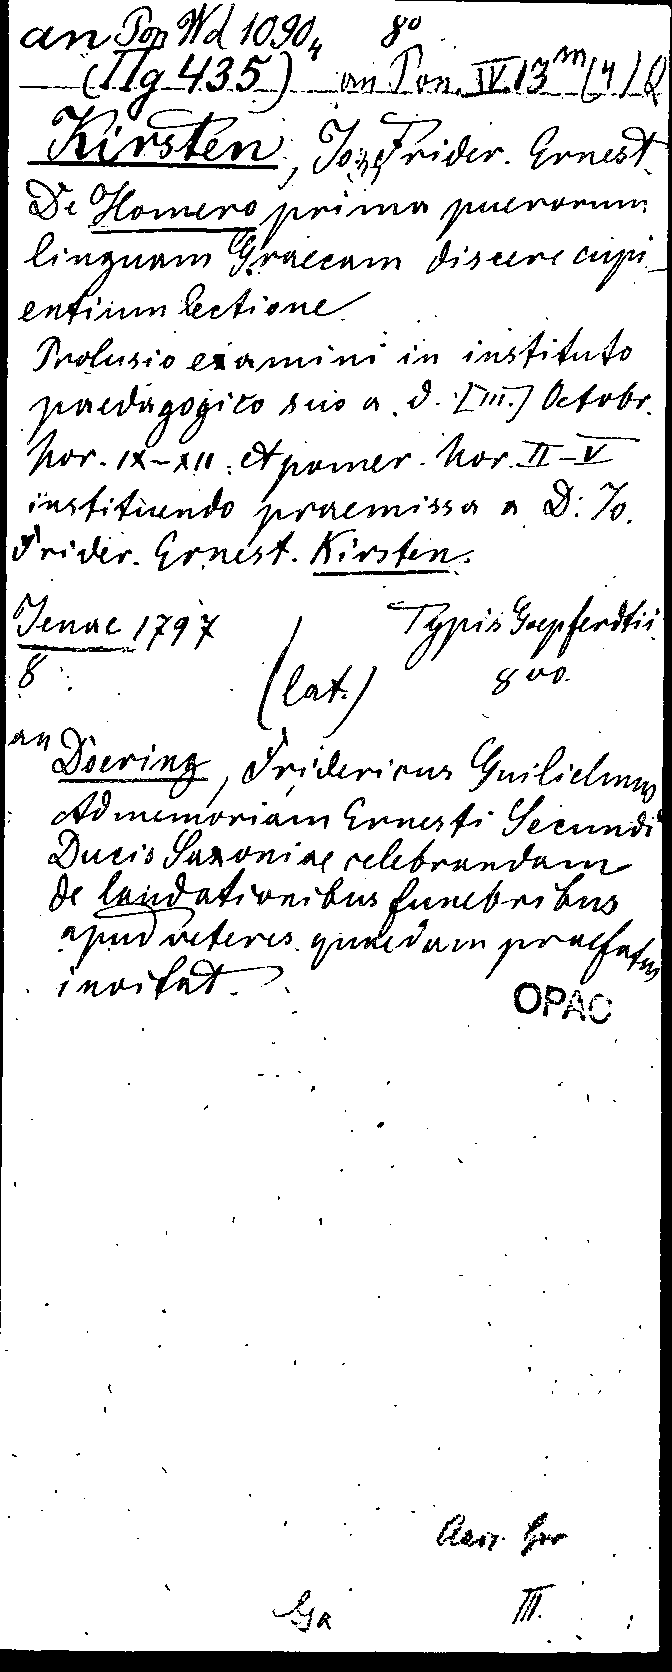 an Pon Wd 1090, 8°
(IIg 435) an Pon IV 13 m (4) Q
Kirsten, Jo. Frider. Ernest.
De Homero prima puerorum
linguam Graecam discere cupi-
entium lectione
Prolusio examini in instituto
paedagogico suo a. d. [III.] Octobr.
hor. IX-XII. et pomer. hor. II-V
instituendo praemissa a D: Jo.
Frider. Ernest. Kirsten.
Jenae 1797 Typis Goepferdtii
8 (lat.) 8 vo.
an Doering, Fridericus Guilielmus
Ad memoriam Ernesti Secundi
Ducis Saxoniae celebrandam
de laudationibus funebribus
apud veteres quaedam praefatus
invitat.
OPAC
Ga III.